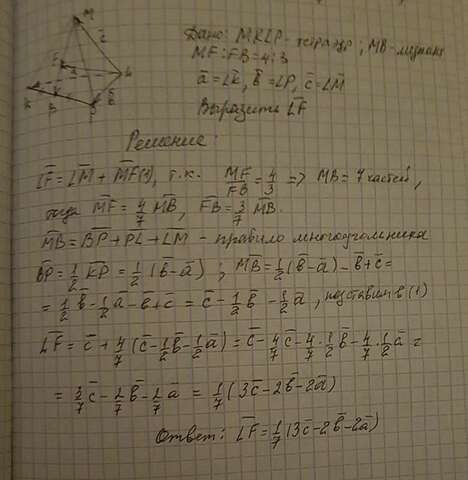 M
c̄
F
K
B
P
L
Дано: MKLP - тетраэдр; MB - медиана
MF:FB = 4:3
ā = L̄K̄, b̄ = L̄P̄, c̄ = L̄M̄
Выразить L̄F̄
Решение:
L̄F̄ = L̄M̄ + M̄F̄ (1), т.к. MF/FB = 4/3 => MB = 7 частей,
тогда M̄F̄ = 4/7 M̄B̄, F̄B̄ = 3/7 M̄B̄.
M̄B̄ = B̄P̄ + P̄L̄ + L̄M̄ - правило многоугольника
B̄P̄ = 1/2 K̄P̄ = 1/2 (b̄ - ā); M̄B̄ = 1/2 (b̄ - ā) - b̄ + c̄ =
= 1/2 b̄ - 1/2 ā - b̄ + c̄ = c̄ - 1/2 b̄ - 1/2 ā, подставим в (1)
L̄F̄ = c̄ + 4/7 (c̄ - 1/2 b̄ - 1/2 ā) = c̄ - 4/7 c̄ - 4/7 · 1/2 b̄ - 4/7 · 1/2 ā =
= 3/7 c̄ - 2/7 b̄ - 2/7 ā = 1/7 (3c̄ - 2b̄ - 2ā)
Ответ: L̄F̄ = 1/7 (3c̄ - 2b̄ - 2ā)